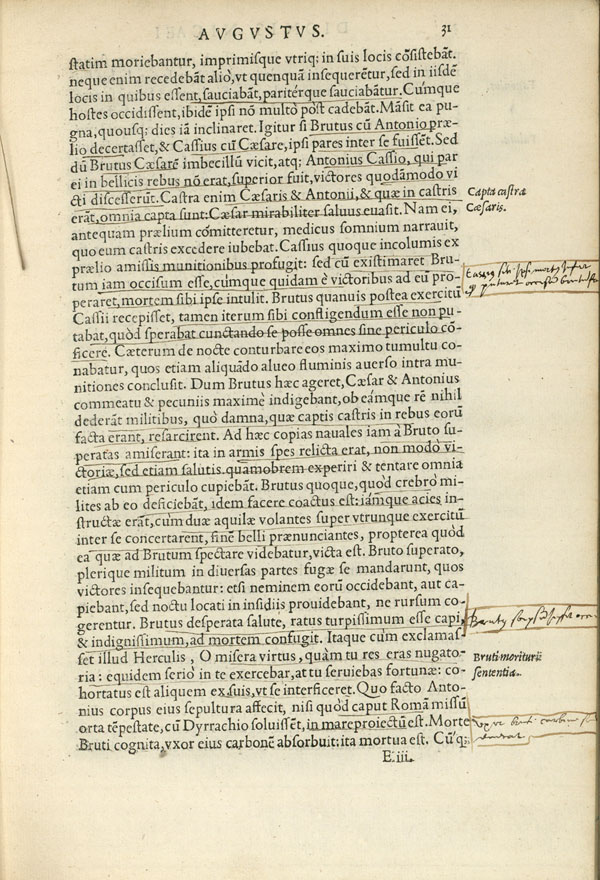 AVGVSTVS.
31
statim moriebantur, imprimisque vtriq; in suis locis cōsistebāt.
neque enim recedebāt alio, vt quenquā insequerētur, sed in iisdē
locis in quibus essent, sauciabāt, paritérque sauciabātur. Cúmque
hostes occidissent, ibidē ipsi nō multò pòst cadebāt. Māsit ea pu-
gna, quousq; dies iā inclinaret. Igitur si Brutus cū Antonio præ-
lio decertasset, & Cassius cū Cæsare, ipsi pares inter se fuissēt. Sed
dū Brutus Cæsarē imbecillū vicit, atq; Antonius Cassio, qui par
ei in bellicis rebus nō erat, superior fuit, victores quodāmodo vi
cti discesserūt. Castra enim Cæsaris & Antonii, & quæ in castris
erāt, omnia capta sunt: Cæsar mirabiliter saluus euasit. Nam ei,
antequam prælium cōmitteretur, medicus somnium narrauit,
quo eum castris excedere iubebat. Cassius quoque incolumis ex
prælio amissis munitionibus profugit: sed cū existimaret Bru-
tum iam occisum esse, cúmque quidam è victoribus ad eū pro-
peraret, mortem sibi ipse intulit. Brutus quanuis postea exercitū
Cassii recepisset, tamen iterum sibi confligendum esse non pu-
tabat, quòd sperabat cunctando se posse omnes sine periculo cō-
ficere. Cæterum de nocte conturbare eos maximo tumultu co-
nabatur, quos etiam aliquádo alueo fluminis auerso intra mu-
nitiones conclusit. Dum Brutus hæc ageret, Cæsar & Antonius
commeatu & pecuniis maximè indigebant, ob eámque rē nihil
dederāt militibus, quo damna, quæ captis castris in rebus eorū
facta erant, resarcirent. Ad hæc copias nauales iam à Bruto su-
peratas amiserant: ita in armis spes relicta erat, non modò vi-
ctoriæ, sed etiam salutis. quamobrem experiri & tentare omnia
etiam cum periculo cupiebāt. Brutus quoque, quòd crebrò mi-
lites ab eo deficiebāt, idem facere coactus est: iámque acies in-
structæ erāt, cùm duæ aquilæ volantes super vtrunque exercitū
inter se concertarent, finē belli prænunciantes, propterea quòd
ea quæ ad Brutum spectare videbatur, victa est. Bruto superato,
plerique militum in diuersas partes fugæ se mandarunt, quos
victores insequebantur: etsi neminem eorū occidebant, aut ca-
piebant, sed noctu locati in insidiis prouidebant, ne rursum co-
gerentur. Brutus desperata salute, ratus turpissimum esse capi,
& indignissimum, ad mortem confugit. Itaque cùm exclamas-
set illud Herculis, O misera virtus, quàm tu res eras nugato-
ria: equidem seriò in te exercebar, at tu seruiebas fortunæ: co-
hortatus est aliquem ex suis, vt se interficeret. Quo facto Anto-
nius corpus eius sepultura affecit, nisi quòd caput Romā missū
orta tēpestate, cū Dyrrachio soluissēt, in mare proiectū est. Morte
Bruti cognita, vxor eius carbonē absorbuit: ita mortua est. Cū'q;
E. iii.
Capta castra
Cæsaris.
Bruti morituri
sententia.